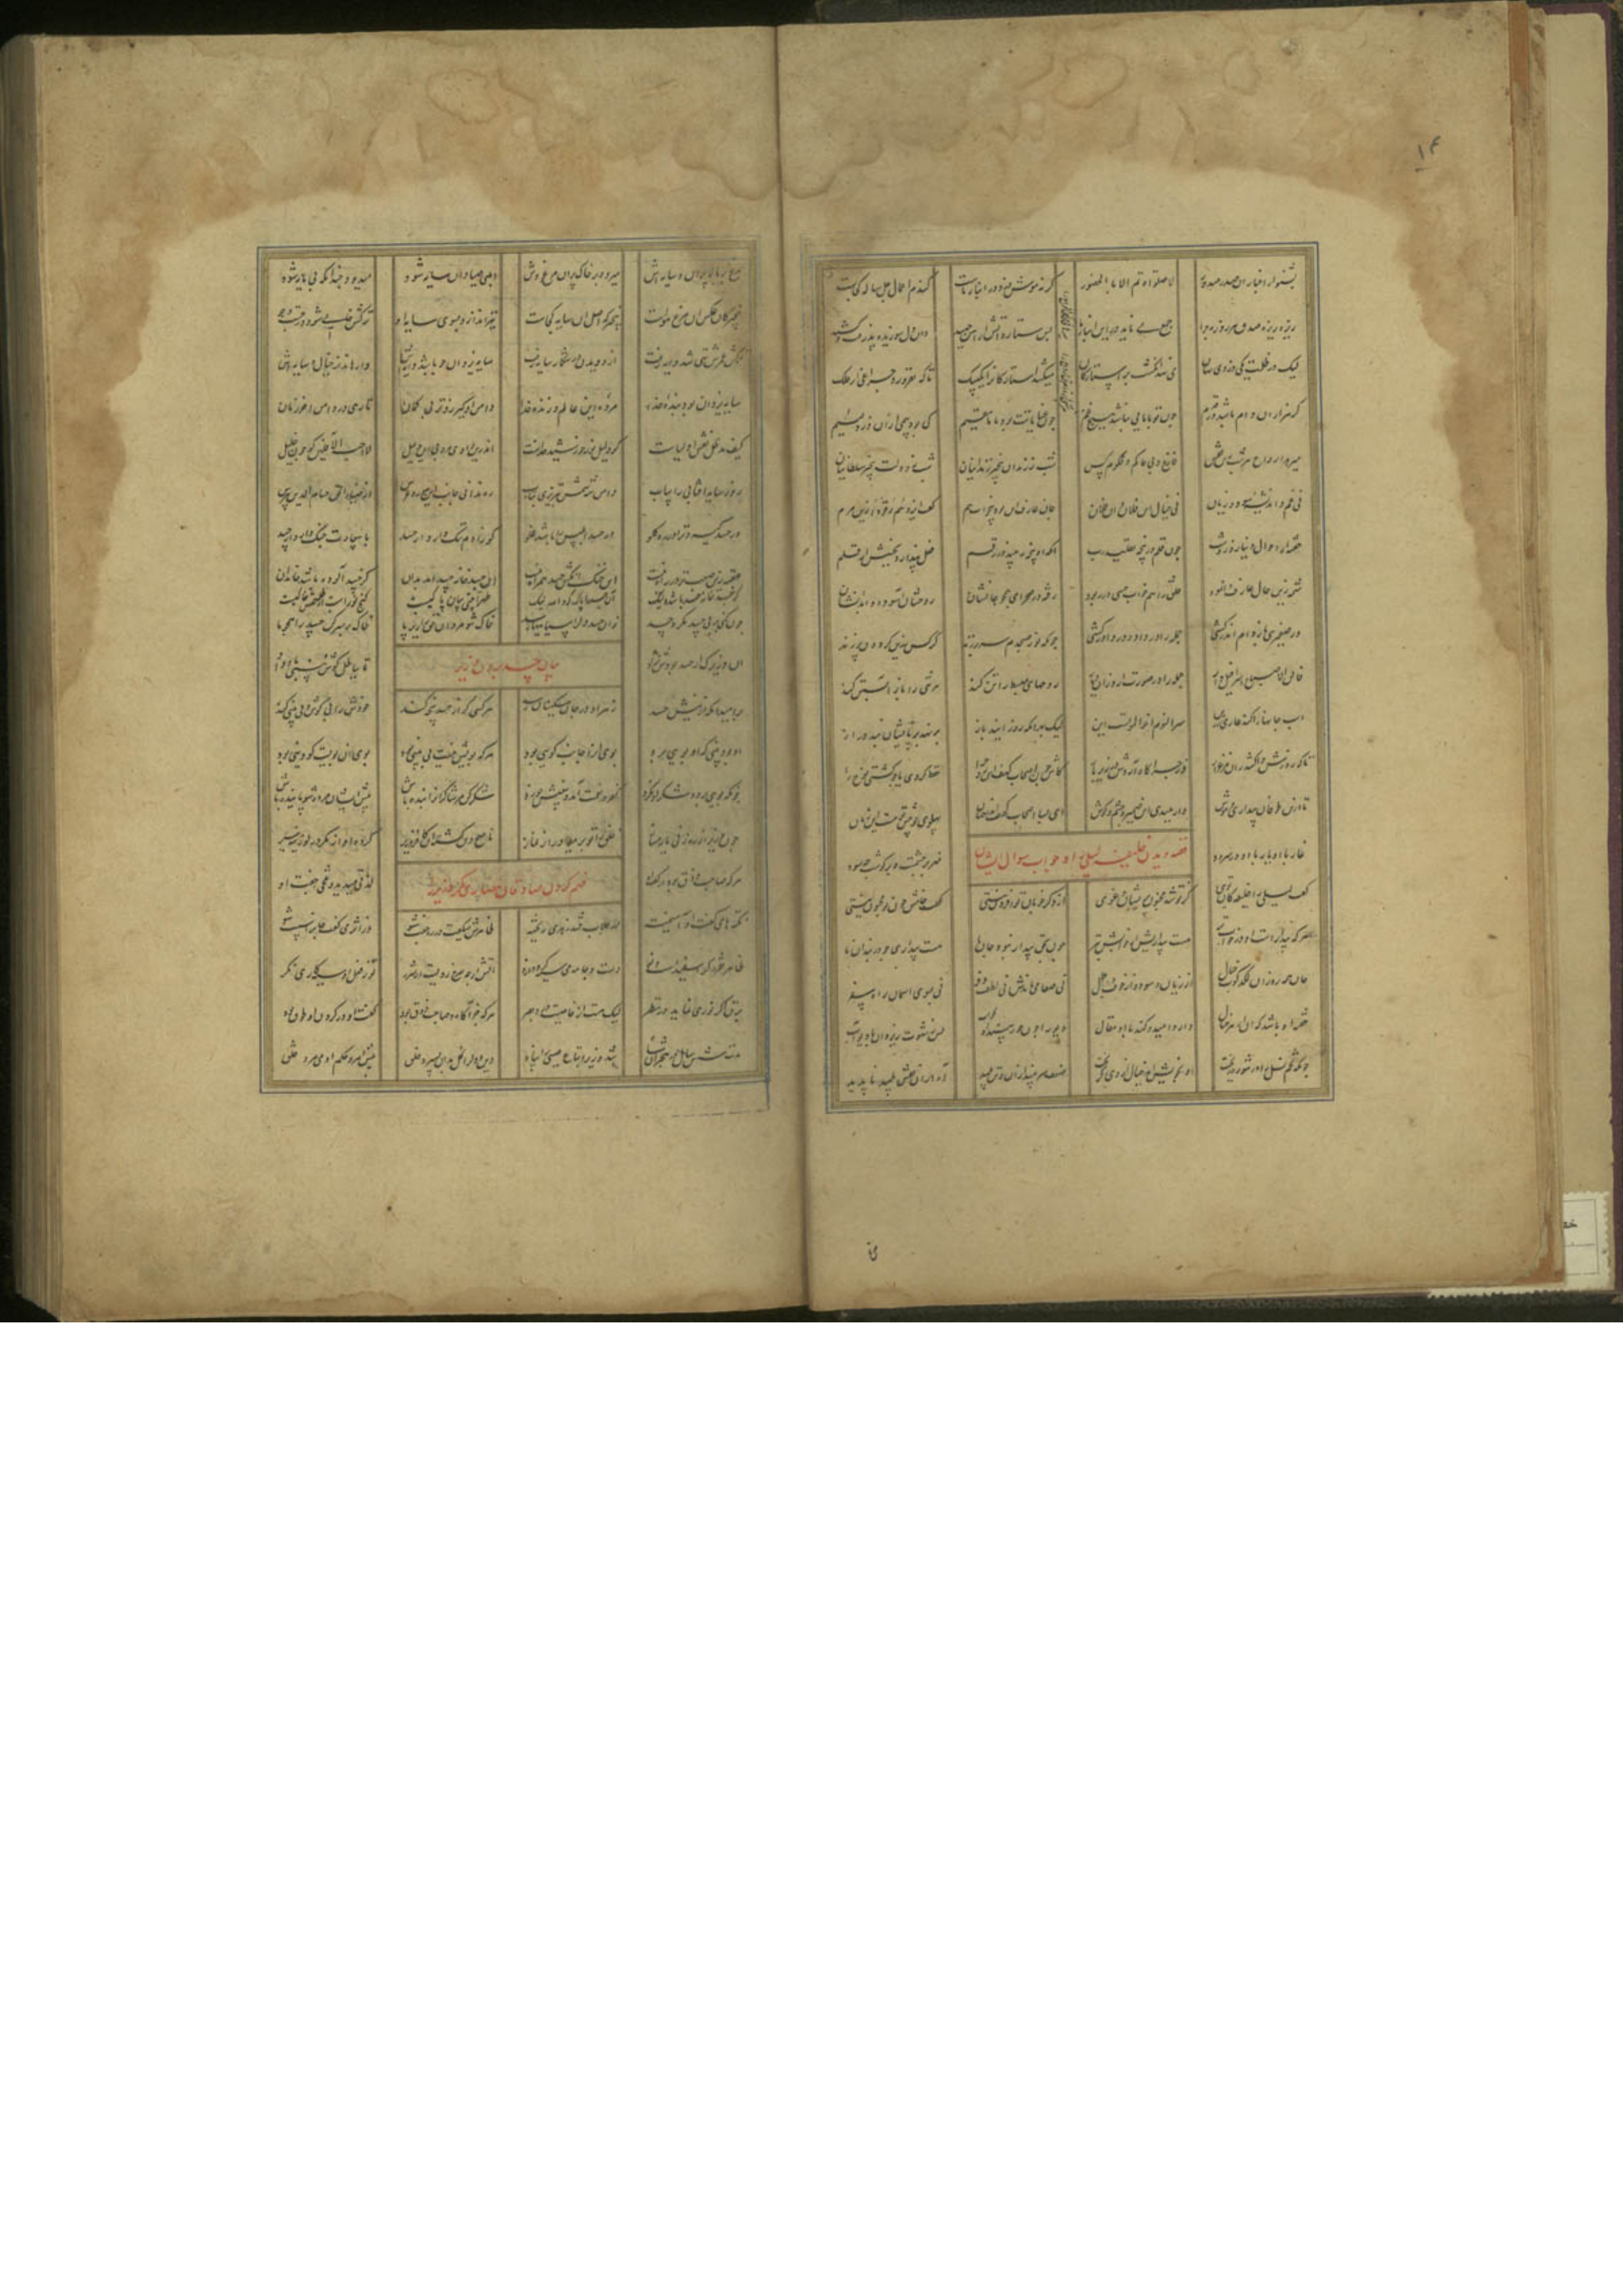 ۱۴
بشنو از اخبار آن صدر صدور لا صلوة تم الا بالحضور گر نه موشی دزد در انبار ماست گندم اعمال چل ساله کجاست
ریزه ریزه صدق هر روزه چرا جمع می ناید درین انبار ما بس ستاره آتش از آهن جهید وان دل سوزیده پذرفت و کشید
لیک در ظلمت یکی دزدی نهان می نهد انگشت بر استارگان میکشد استارگان را یک بیک تا که نفروزد چراغی از فلک
گر هزاران دام باشد در قدم چون تو با مایی نباشد هیچ غم چون عنایاتت بود با ما مقیم کی بود بیمی از آن دزد لئیم
میرهند ارواح هر شب زین قفس فارغ و نی حاکم و محکوم کس شب ز زندان بیخبر زندانیان شب ز دولت بیخبر سلطانیان
نی غم و اندیشه سود و زیان نی خیال این فلان و آن فلان حال عارف این بود بیخواب هم گفت ایزد هم رقود زین مرم
خفته از احوال دنیا روز و شب چون قلم در پنجه تقلیب رب آنکه او پنجه نبیند در رقم فعل پندارد بجنبش از قلم
شمه زین حال عارف وانمود خلق را هم خواب حسی در ربود رفته در صحرای بیچون جانشان روحشان آسوده و ابدانشان
وز صفیری باز دام اندر کشی جمله را در داد و در داور کشی چونکه نور صبحدم سر برزند کرکس زرین گردون پر زند
فالق الاصباح اسرافیل وار جمله را در صورت آرد زان دیار روحهای منبسط را تن کند هر تنی را باز آبستن کند
اسب جانها را کند عاری ز زین سر النوم اخو الموتست این لیک بهر آنکه روز آیند باز برنهد بر پایشان بند دراز
تا که روزش واکشد زان مرغزار وز چراگاه آردش در زیر بار کاش چون اصحاب کهف این روح را حفظ کردی یا چو کشتی نوح را
تا ازین طوفان بیداری و هوش وارهیدی این ضمیر و چشم و گوش ای بسا اصحاب کهف اندر جهان پهلوی تو پیش تو هست این زمان
غار با او یار با او در سرود مهر بر چشمست و بر گوشت چه سود
قصه دیدن خلیفه لیلی را و جواب سوال ایشان
گفت لیلی را خلیفه کان توی کز تو شد مجنون پریشان و غوی از دگر خوبان تو افزون نیستی گفت خامش چون تو مجنون نیستی
هر که بیدارست او در خواب تر هست بیداریش از خوابش بتر چون بحق بیدار نبود جان ما هست بیداری چو دربندان ما
جان همه روز از لگدکوب خیال از زیان و سود و از خوف زوال نی صفا می ماندش نی لطف و فر نی بسوی آسمان راه سفر
خفته آن باشد که او از هر خیال دارد امید و کند با او مقال دیو را چون حور بیند او بخواب پس ز شهوت ریزد او با دیو آب
چونکه تخم نسل او در شوره ریخت او بخویش آمد خیال از وی گریخت ضعف سر بیند از آن و تن پلید آه از آن نقش پدید ناپدید
مرغ بر بالا پران و سایه اش میدود بر خاک پران مرغ وش ابلهی صیاد آن سایه شود میدود چندانکه بی مایه شود
بیخبر کان عکس آن مرغ هواست بیخبر که اصل آن سایه کجاست تیر اندازد بسوی سایه او ترکشش خالی شود در جست و جو
ترکش عمرش تهی شد عمر رفت از دویدن در شکار سایه تفت سایه یزدان چو باشد دایه اش وارهاند از خیال و سایه اش
سایه یزدان بود بنده خدا مرده این عالم و زنده خدا دامن او گیر زوتر بی گمان تا رهی در دامن آخر زمان
کیف مد الظل نقش اولیاست کو دلیل نور خورشید خداست اندرین وادی مرو بی این دلیل لا احب الآفلین گو چون خلیل
رو ز سایه آفتابی را بیاب دامن شه شمس تبریزی بتاب ره ندانی جانب این سور و عرس از ضیاء الحق حسام الدین بپرس
ور حسد گیرد ترا در ره گلو در حسد ابلیس را باشد غلو کو ز آدم ننگ دارد از حسد با سعادت جنگ دارد از حسد
عقبه زین صعبتر در راه نیست ای خنک آنکش حسد همراه نیست این جسد خانه حسد آمد بدان کز حسد آلوده باشد خاندان
گر جسد خانه حسد باشد ولیک آن جسد را پاک کرد الله نیک طهرا بیتی بیان پاکیست گنج نورست ار طلسمش خاکیست
چون کنی بر بی حسد مکر و حسد زان حسد دل را سیاهیها رسد خاک شو مردان حق را زیر پا خاک بر سر کن حسد را همچو ما
بیان حسد کردن وزیر
آن وزیرک از حسد بودش نژاد تا بباطل گوش و بینی باد داد
بر امید آنکه از نیش حسد زهر او در جان مسکینان رسد هر کسی کو از حسد بینی کند خویش را بی گوش و بی بینی کند
او بود بینی که او بویی برد بوی او را جانب کویی برد هر که بویش نیست بی بینی بود بوی آن بویست کو دینی بود
چونکه بویی برد و شکر آن نکرد کفر نعمت آمد و بینیش خورد شکر کن مر شاکران را بنده باش پیش ایشان مرده شو پاینده باش
چون وزیر از ره زنی مایه مساز خلق را تو بر میاور از نماز ناصح دین گشته آن کافر وزیر کرده او از مکر در لوزینه سیر
فهم کردن صادقان نصاری مکر وزیر را
هر که صاحب ذوق بود از گفت او لذتی میدید و تلخی جفت او
نکته های گفت او آمیخته در جلاب قند زهری ریخته ظاهرش میگفت در ره چست شو وز اثر می گفت جان را سست شو
ظاهر نقره گر اسپیدست و نو دست و جامه می سیه گردد ازو آتش ارچه سرخ رویست از شرر تو ز فعل او سیه کاری نگر
برق اگر نوری نماید در نظر لیک هست از خاصیت دزد بصر هر که جز آگاه و صاحب ذوق بود گفت او در گردن او طوق بود
مدت شش سال در هجران شاه شد وزیر اتباع عیسی را پناه دین و دل را کل بدو بسپرد خلق پیش امر و حکم او می مرد خلق